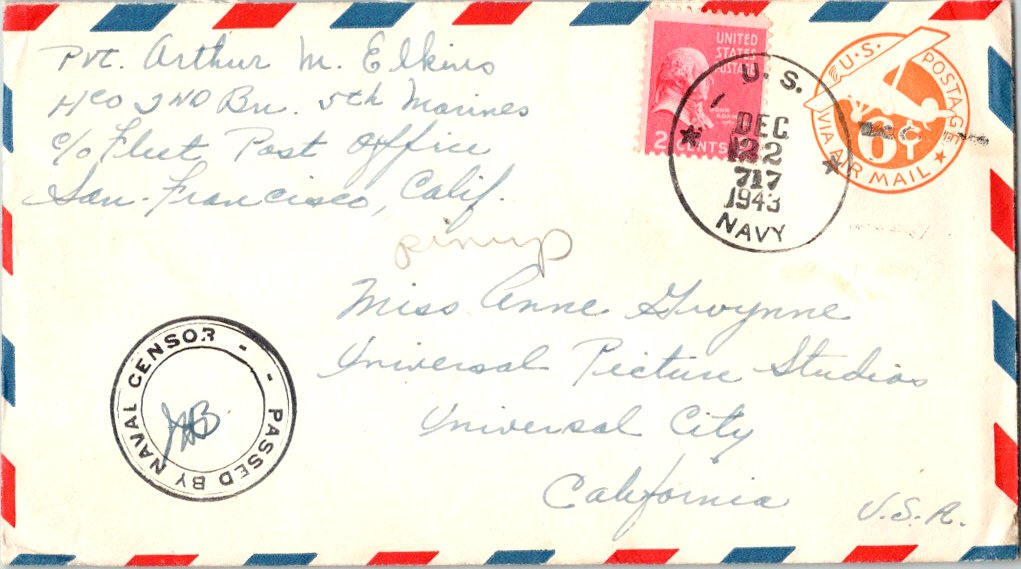 Pvt. Arthur M. Elkins
H Co 2ND Bn. 5th Marines
c/o Fleet Post Office
San Francisco, Calif.
UNITED
STATES
POSTAGE
JOHN ADAMS
2 CENTS
U. S.
DEC
22
717
1943
NAVY
U.S. POSTAGE
6¢
VIA AIR MAIL
pinup
Miss Anne Gwynne
Universal Picture Studios
Universal City
California
U.S.A.
PASSED BY NAVAL CENSOR